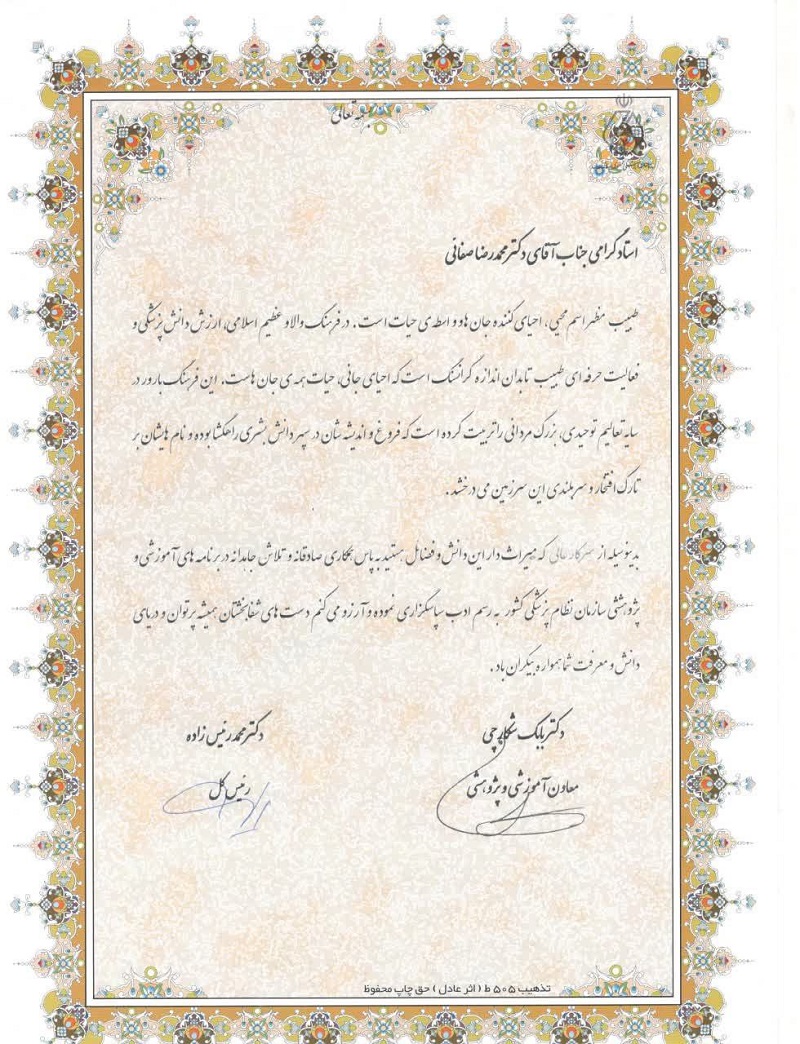 بسمه تعالی
استاد گرامی جناب آقای دکتر محمدرضا صفائی
طبیب مظهر اسم محیی، احیای کننده جان ها و واسطه ی حیات است. در فرهنگ والا و عظیم اسلامی، ارزش دانش پزشکی و
فعالیت حرفه ای طبیب تا بدان اندازه گرانسنگ است که احیای جانی، حیات همه ی جان هاست. این فرهنگ بارور در
سایه تعالیم توحیدی، بزرگ مردانی را تربیت کرده است که فروغ و اندیشه شان در سپهر دانش بشری راهگشا بوده و نام هایشان بر
تارک افتخار و سربلندی این سرزمین می درخشد.
بدینوسیله از سرکار عالی که میراث دار این دانش و فضائل هستید به پاس همکاری صادقانه و تلاش مجدانه در برنامه های آموزشی و
پژوهشی سازمان نظام پزشکی کشور به رسم ادب سپاسگزاری نموده و آرزو می کنم دست های شفابخشتان همیشه پرتوان و دریای
دانش و معرفت شما همواره بیکران باد.
دکتر بابک شکارچی
معاون آموزشی و پژوهشی
دکتر محمد رئیس زاده
رئیس کل
تذهیب ۵۰۵ ط ( اثر عادل ) حق چاپ محفوظ